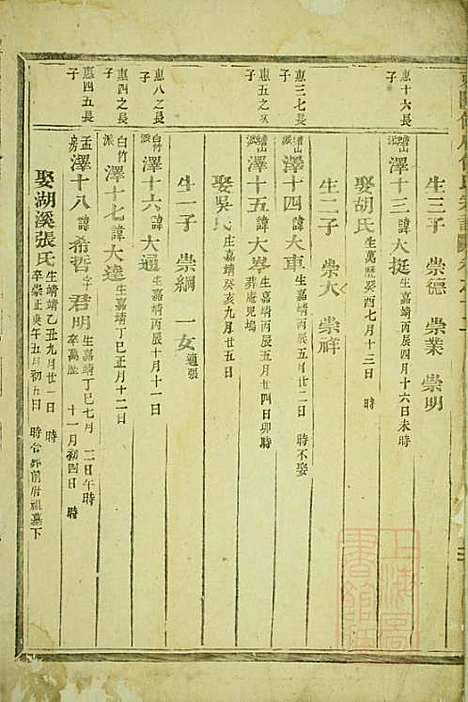 生三子 崇德 崇業 崇明
惠十六長子
澤十三 諱大挺 生嘉靖丙辰四月十六日未時
娶胡氏 生萬歷癸酉七月十三日 時
生二子 崇大 崇祥
惠三七長子
澤十四 諱大車 生嘉靖丙辰五月廿二日 時不娶
惠五之子
澤十五 諱大岑 生嘉靖丙辰五月廿四日卯時 葬庵兒塢
娶吳氏 生嘉靖癸亥九月廿五日
生一子 崇綱 一女 適張
惠八之長子
白竹派 澤十六 諱大通 生嘉靖丙辰十月十一日
白竹派 澤十七 諱大達 生嘉靖丁巳正月十二日
惠四五長子
孟房 澤十八 諱希哲 字君明 生嘉靖丁巳七月 二日午時 卒萬歷 十一月初四日 時
娶湖溪張氏 生嘉靖乙丑九月廿一日 時 卒崇正庚午五月初五日 時合葬前府祖墓下